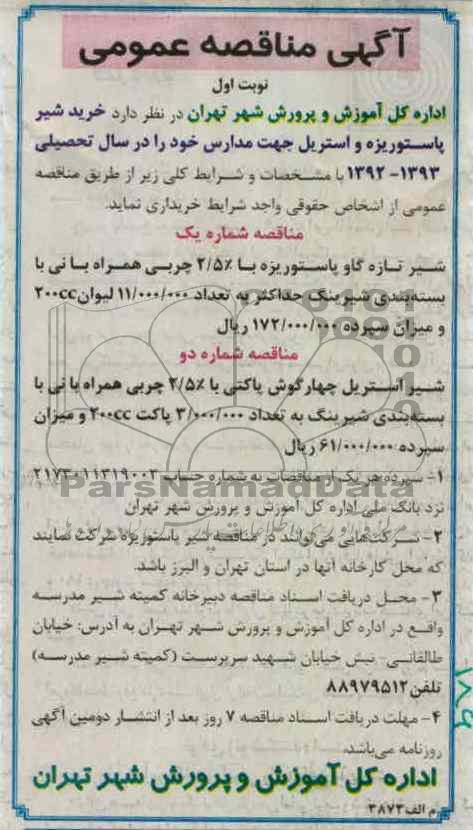 آگهی مناقصه عمومی
نوبت اول
اداره کل آموزش و پرورش شهر تهران در نظر دارد خرید شیر
پاستوریزه و استریل جهت مدارس خود را در سال تحصیلی
۱۳۹۳- ۱۳۹۲ با مشخصات و شرایط کلی زیر از طریق مناقصه
عمومی از اشخاص حقوقی واجد شرایط خریداری نماید.
مناقصه شماره یک
شیر تازه گاو پاستوریزه با ۲/۵٪ چربی همراه با نی با
بسته‌بندی شیرینگ حداکثر به تعداد ۱۱/۰۰۰/۰۰۰ لیوان ۲۰۰cc
و میزان سپرده ۱۷۲/۰۰۰/۰۰۰ ریال
مناقصه شماره دو
شیر استریل چهارگوش پاکتی با ۲/۵٪ چربی همراه با نی با
بسته‌بندی شیرینگ به تعداد ۳/۰۰۰/۰۰۰ پاکت ۲۰۰cc و میزان
سپرده ۶۱/۰۰۰/۰۰۰ ریال
۱- سپرده هر یک از مناقصات به شماره حساب ۲۱۷۳۰۱۱۳۱۹۰۰۲
نزد بانک ملی اداره کل آموزش و پرورش شهر تهران
ParsNamadData
۲- شرکت‌هایی می‌توانند در مناقصه شیر پاستوریزه شرکت نمایند
که محل کارخانه آنها در استان تهران و البرز باشد.
۳- محل دریافت اسناد مناقصه دبیرخانه کمیته شیر مدرسه
واقع در اداره کل آموزش و پرورش شهر تهران به آدرس: خیابان
طالقانی- نبش خیابان شهید سرپرست (کمیته شیر مدرسه)
تلفن ۸۸۹۷۹۵۱۲
۴- مهلت دریافت اسناد مناقصه ۷ روز بعد از انتشار دومین آگهی
روزنامه می‌باشد.
اداره کل آموزش و پرورش شهر تهران
م الف ۳۸۷۳